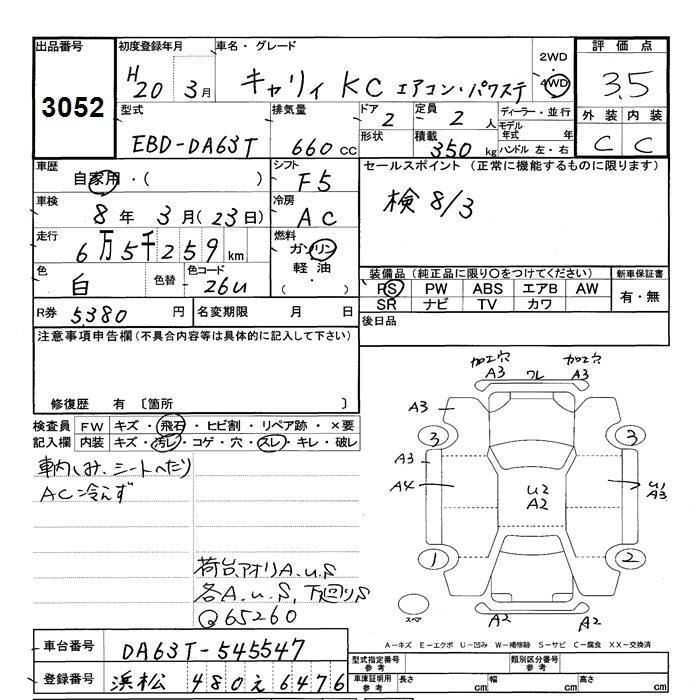 出品番号 初度登録年月 車名・グレード 2WD 4WD 評価点
3052 H20 3月 キャリィ KC エアコン・パワステ 3.5
型式 排気量 ドア 定員 ディーラー・並行 外装 内装
EBD-DA63T 660cc 2 2人 モデル年式 年 C C
形状 積載 350kg ハンドル 左・右
車歴 自家用・( ) シフト F5 セールスポイント (正常に機能するものに限ります)
車検 8年 3月(23日) 冷房 AC 検 8/3
走行 6万5千259km 燃料 ガソリン
色 白 色替 色コード 26U 軽油 ( )
装備品(純正品に限り○をつけてください) 新車保証書
RS PW ABS エアB AW 有・無
SR ナビ TV カワ
R券 5,380円 名変期限 月 日 後日品
注意事項申告欄(不具合内容等は具体的に記入して下さい)
修復歴 有 〔箇所 〕
検査員 FW キズ・飛石・ヒビ割・リペア跡・×要
記入欄 内装 キズ・汚レ・コゲ・穴・スレ・キレ・破レ
車内しみ、シートへたり
AC冷えず
荷台アオリA.U.S
各A.U.S, 下回りS
Q65260
加工穴 加工穴
A3 ワレ A3
A3
3 3
A3
A4 U2 A2 U1 A3
1 2
スペア A2 A2
A-キズ E-エクボ U-凹み W-補修跡 S-サビ C-腐食 XX-交換済
車台番号 DA63T-545547 型式指定番号 参考 類別区分番号 参考
登録番号 浜松 480え6476 車庫証明用 参考 長さ cm 幅 cm 高さ cm